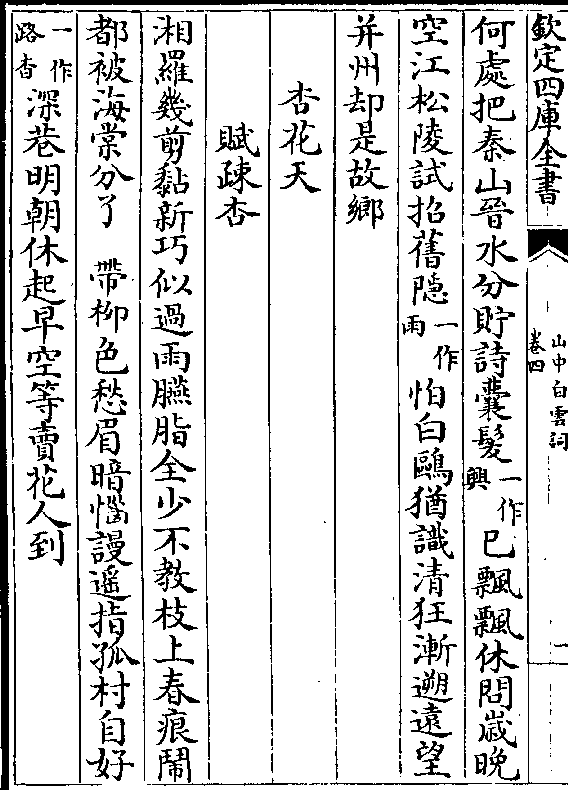 欽定四庫全書
山中白雲詞
卷四
一
何處把秦山晉水分貯詩囊髮一作興已飄飄休問歲晚
空江松陵試招舊隱一作雨怕白鷗猶識清狂漸遡遠望
并州却是故鄉
杏花天
賦疎杏
湘羅幾剪黏新巧似過雨臙脂全少不教枝上春痕鬧
都被海棠分了　帶柳色愁眉暗惱謾遥指孤村自好
一作路杳深巷明朝休起早空等賣花人到